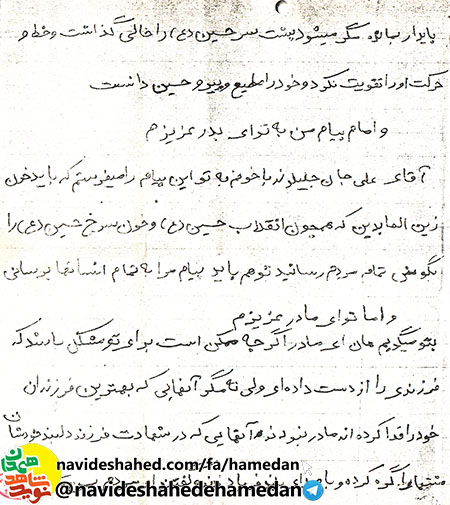 پایدار بماند مگر میشود پشت سر حسین (ع) را خالی گذاشت و خط و
حرکت او را تقویت نکرد و خود را مطیع و پیرو حسین دانست
و اما پیام من به تو ای پدر عزیزم
آقای علی جان جلیلوند با خونم به تو این پیام را میفرستم که باید چون
زین العابدین که همچون انقلاب حسین (ع) و خون سرخ حسین (ع) را
بگوش تمام مردم رسانید تو هم باید پیام مرا به تمام انسانها برسانی
و اما تو ای مادر عزیزم
بتو میگویم هان ای مادر اگر چه ممکن است برای تو مشکل باشد که
فرزندی را از دست داده‌ای ولی نه مگر آنهایی که بهترین فرزندان
خود را فدا کرده‌اند مادر نبودند آنهایی که در شهادت فرزند دلبند خودشان
مشتها را گره کرده و با
navideshahed.com/fa/hamedan
@navideshahedehamedan
نوید شاهد
همدان